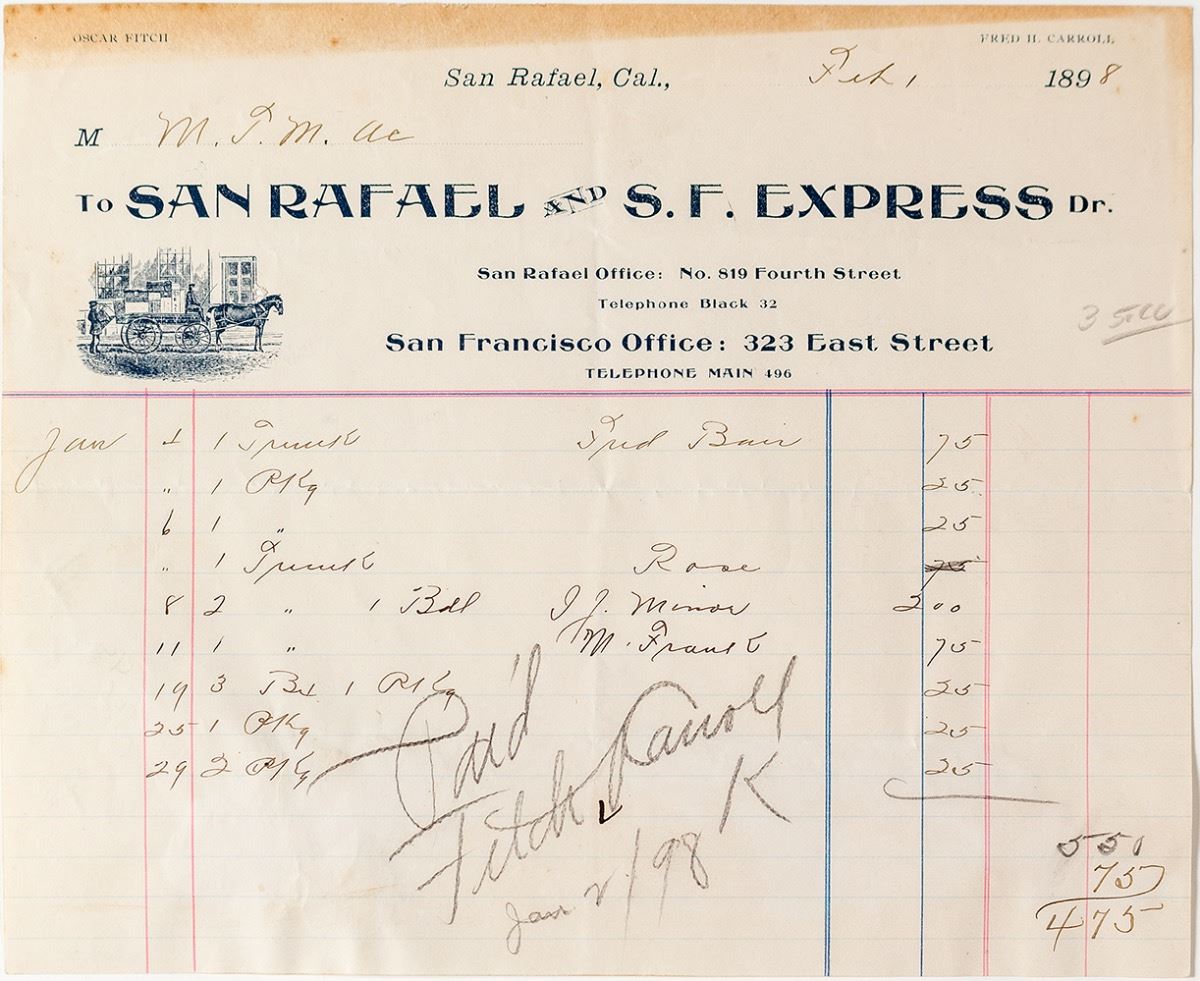 OSCAR FITCH FRED H. CARROLL
San Rafael, Cal., Feb 1 1898
M M. T. M. Ac
To SAN RAFAEL AND S. F. EXPRESS Dr.
San Rafael Office: No. 819 Fourth Street
Telephone Black 32
San Francisco Office: 323 East Street
TELEPHONE MAIN 496
Jan 4 1 Trunk Fred Bair 75
" 1 Pkg 25
6 1 " 25
" 1 Trunk Rose 75
8 2 " 1 Bdl I J. Minor 200
11 1 " M. Frank 75
19 3 Bx 1 Pkg 25
25 1 Pkg 25
29 2 Pkg 25
Pai'd
Fitch Carroll
K
Jan 2/98
550
75
475